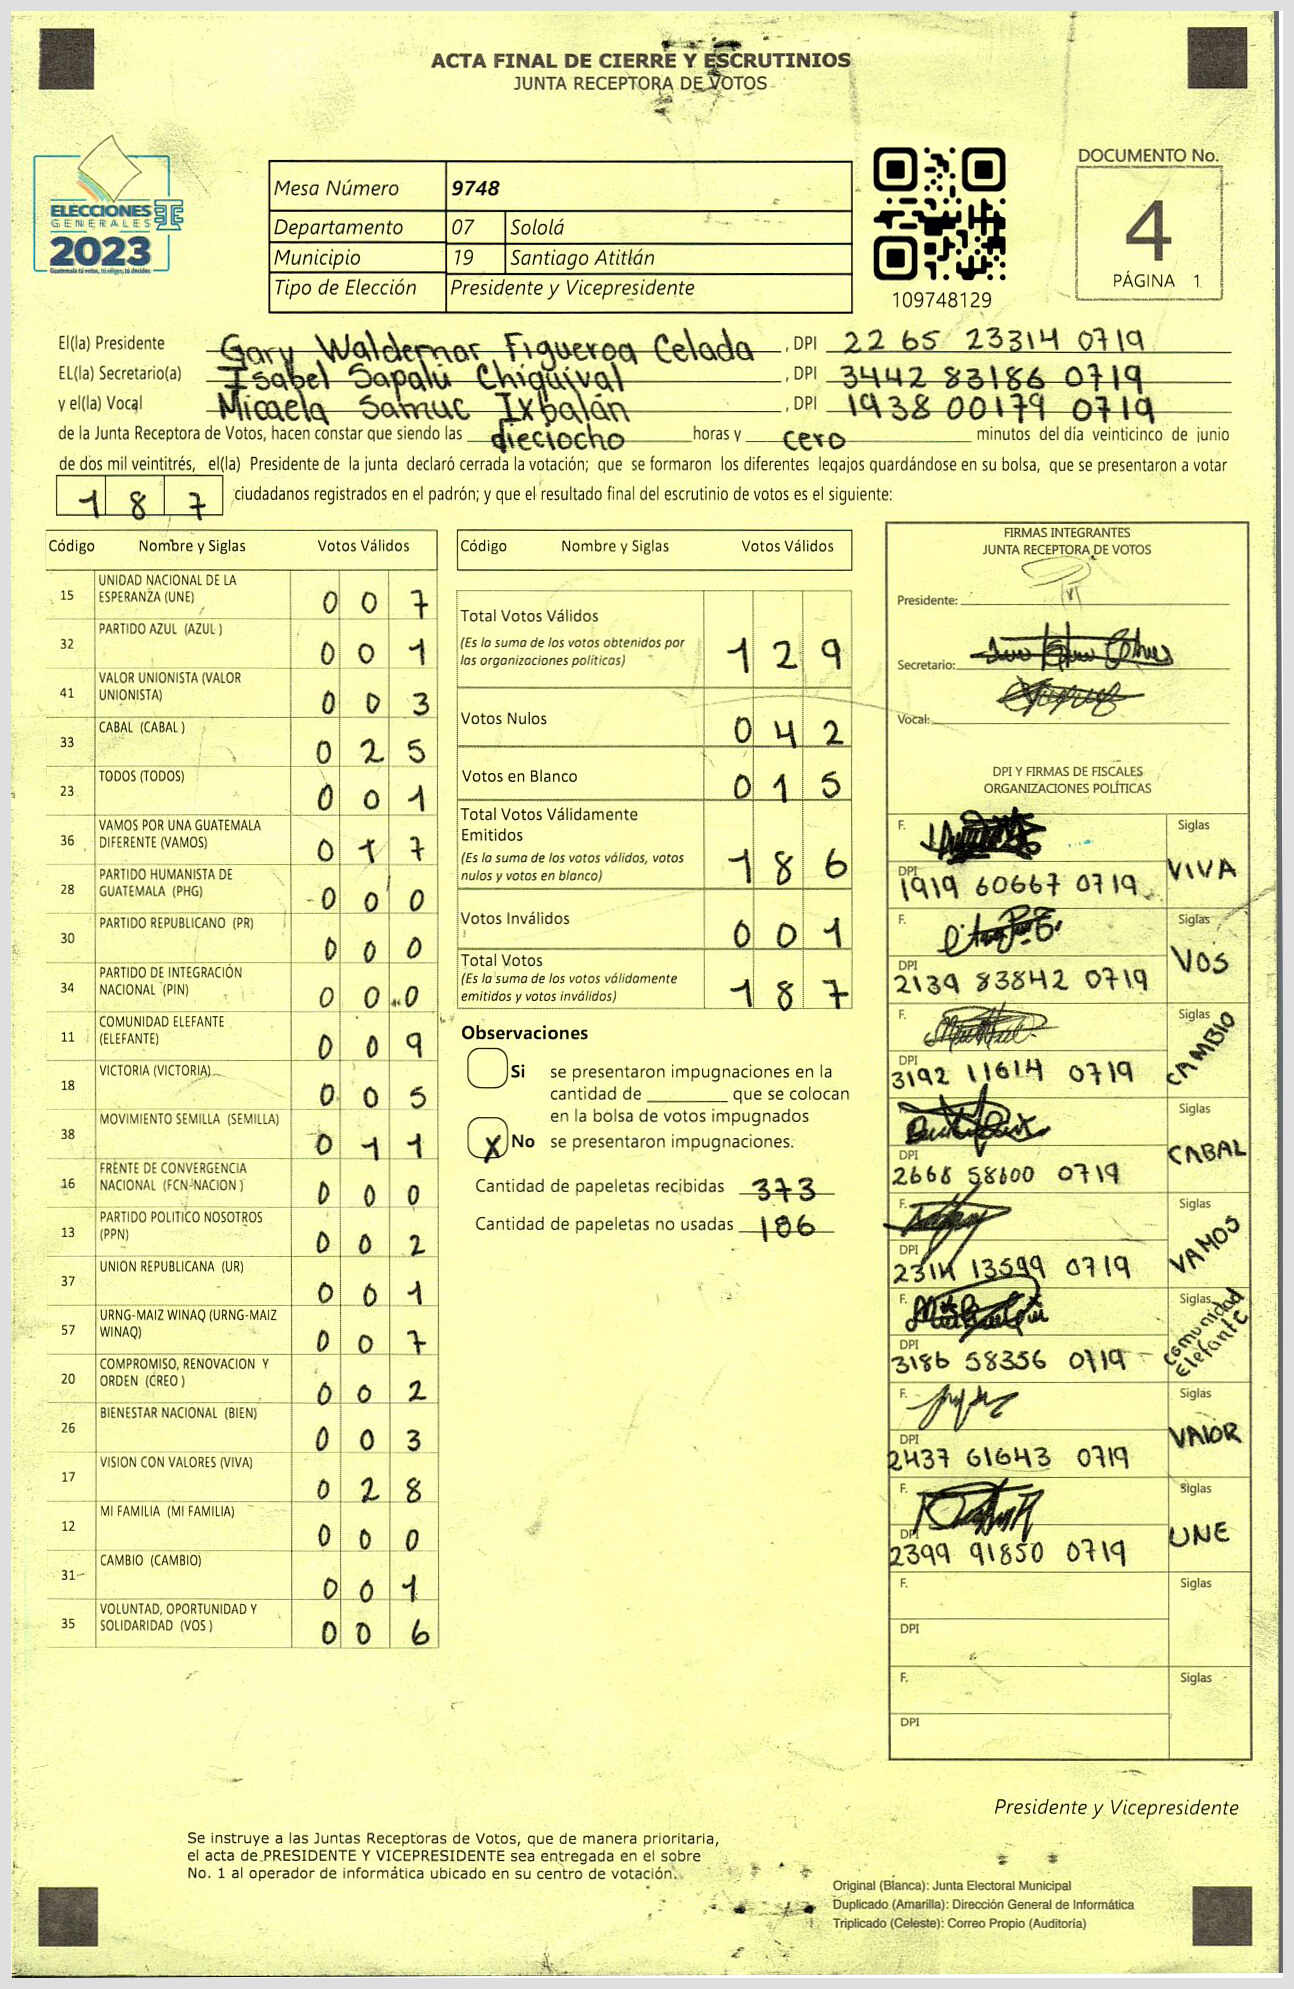 ACTA FINAL DE CIERRE Y ESCRUTINIOS
JUNTA RECEPTORA DE VOTOS
ELECCIONES
GENERALES
2023
Guatemala tú votas, tú eliges, tú decides
Mesa Número 9748
Departamento 07 Sololá
Municipio 19 Santiago Atitlán
Tipo de Elección Presidente y Vicepresidente
109748129
DOCUMENTO No.
4
PÁGINA 1
El(la) Presidente Gary Waldemar Figueroa Celada, DPI 2265 23314 0719
EL(la) Secretario(a) Isabel Sapalú Chiquival, DPI 3442 83186 0719
y el(la) Vocal Micaela Samuc Ixbalán, DPI 1938 00179 0719
de la Junta Receptora de Votos, hacen constar que siendo las dieciocho horas y cero minutos del día veinticinco de junio
de dos mil veintitrés, el(la) Presidente de la junta declaró cerrada la votación; que se formaron los diferentes legajos guardándose en su bolsa, que se presentaron a votar
187 ciudadanos registrados en el padrón; y que el resultado final del escrutinio de votos es el siguiente:
Código Nombre y Siglas Votos Válidos
15 UNIDAD NACIONAL DE LA ESPERANZA (UNE) 007
32 PARTIDO AZUL (AZUL ) 001
41 VALOR UNIONISTA (VALOR UNIONISTA) 003
33 CABAL (CABAL ) 025
23 TODOS (TODOS) 001
36 VAMOS POR UNA GUATEMALA DIFERENTE (VAMOS) 017
28 PARTIDO HUMANISTA DE GUATEMALA (PHG) 000
30 PARTIDO REPUBLICANO (PR) 000
34 PARTIDO DE INTEGRACIÓN NACIONAL (PIN) 000
11 COMUNIDAD ELEFANTE (ELEFANTE) 009
18 VICTORIA (VICTORIA) 005
38 MOVIMIENTO SEMILLA (SEMILLA) 011
16 FRENTE DE CONVERGENCIA NACIONAL (FCN-NACION ) 000
13 PARTIDO POLITICO NOSOTROS (PPN) 002
37 UNION REPUBLICANA (UR) 001
57 URNG-MAIZ WINAQ (URNG-MAIZ WINAQ) 007
20 COMPROMISO, RENOVACION Y ORDEN (CREO ) 002
26 BIENESTAR NACIONAL (BIEN) 003
17 VISION CON VALORES (VIVA) 028
12 MI FAMILIA (MI FAMILIA) 000
31 CAMBIO (CAMBIO) 001
35 VOLUNTAD, OPORTUNIDAD Y SOLIDARIDAD (VOS ) 006
Código Nombre y Siglas Votos Válidos
Total Votos Válidos 129
(Es la suma de los votos obtenidos por
las organizaciones políticas)
Votos Nulos 042
Votos en Blanco 015
Total Votos Válidamente
Emitidos 186
(Es la suma de los votos válidos, votos
nulos y votos en blanco)
Votos Inválidos 001
Total Votos 187
(Es la suma de los votos válidamente
emitidos y votos inválidos)
Observaciones
Si se presentaron impugnaciones en la
cantidad de ________ que se colocan
en la bolsa de votos impugnados
X No se presentaron impugnaciones.
Cantidad de papeletas recibidas 373
Cantidad de papeletas no usadas 186
FIRMAS INTEGRANTES
JUNTA RECEPTORA DE VOTOS
Presidente:
Secretario:
Vocal:
DPI Y FIRMAS DE FISCALES
ORGANIZACIONES POLÍTICAS
F. Siglas
DPI 1919 60667 0719 VIVA
F. Siglas
DPI 2139 83842 0719 VOS
F. Siglas
DPI 3192 11614 0719 CAMBIO
F. Siglas
DPI 2668 58600 0719 CABAL
F. Siglas
DPI 2314 13599 0719 VAMOS
F. Siglas
DPI 3186 58356 0719 Comunidad Elefante
F. Siglas
DPI 2437 61643 0719 VALOR
F. Siglas
DPI 2399 91850 0719 UNE
F. Siglas
DPI
F. Siglas
DPI
Presidente y Vicepresidente
Se instruye a las Juntas Receptoras de Votos, que de manera prioritaria,
el acta de PRESIDENTE Y VICEPRESIDENTE sea entregada en el sobre
No. 1 al operador de informática ubicado en su centro de votación.
Original (Blanca): Junta Electoral Municipal
Duplicado (Amarilla): Dirección General de Informática
Triplicado (Celeste): Correo Propio (Auditoría)